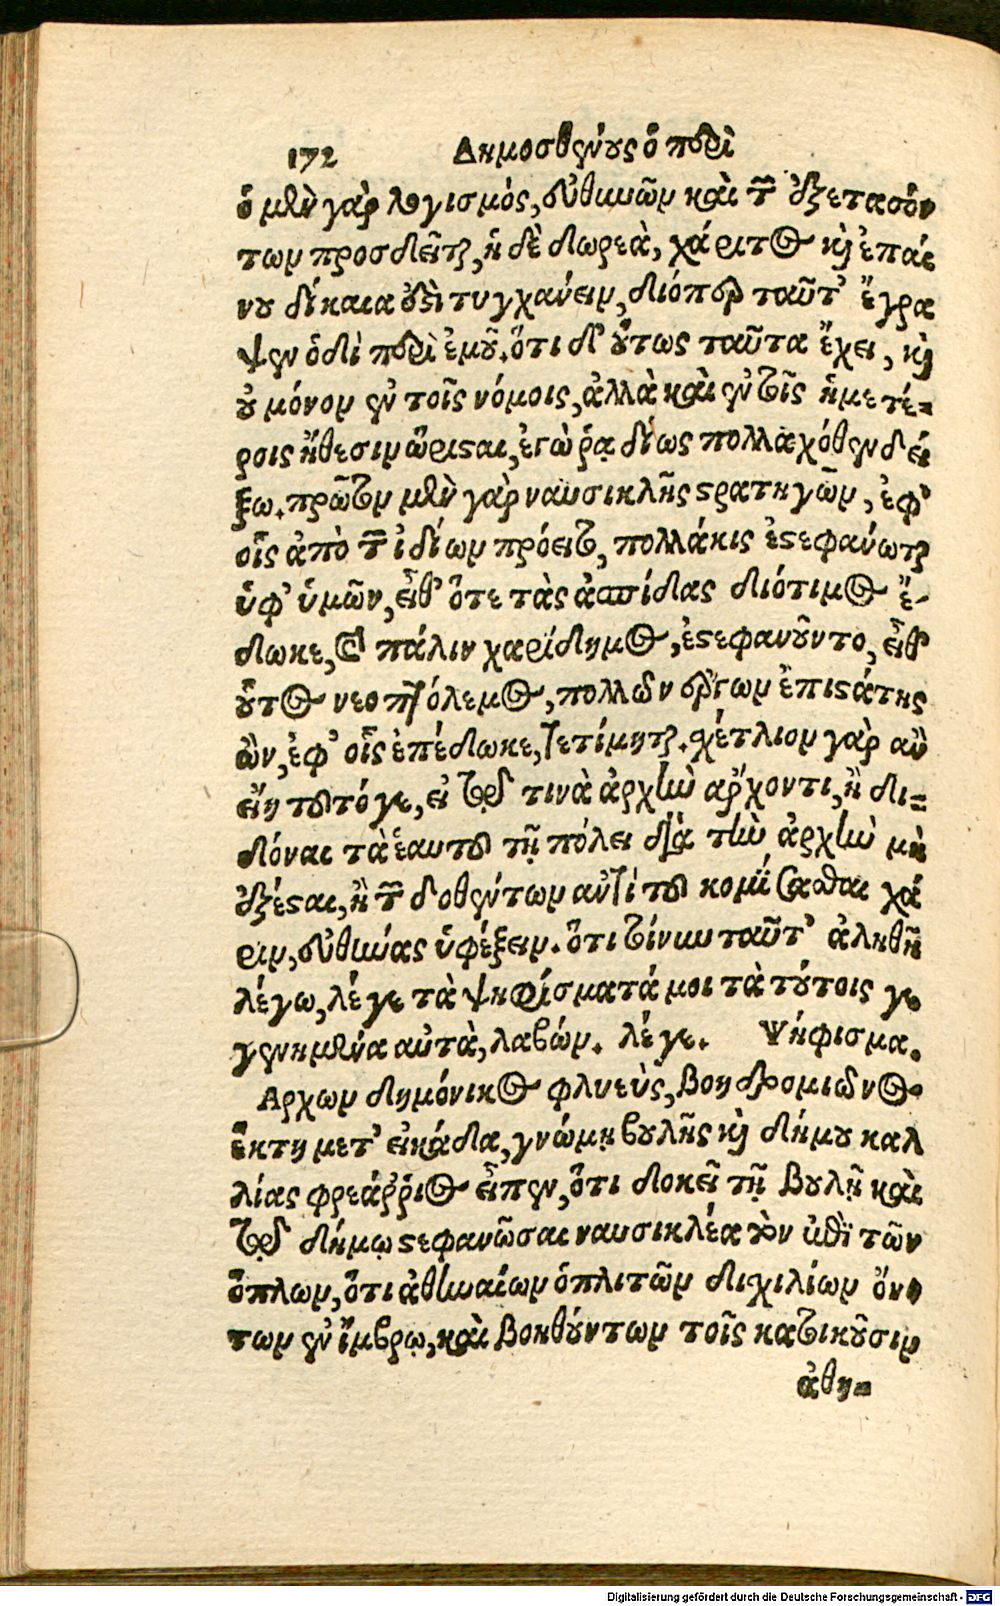 172 Δημοσθένους ὁ περὶ
ὁ μὲν γὰρ λογισμὸς, εὐθυνῶν καὶ τῶν ἐξετασόν
των προσδεῖται, ἡ δὲ δωρεὰ, χάριτος καὶ ἐπαί
νου δίκαια ἐστὶ τυγχάνειν, διόπερ ταῦτ' ἔγρα
ψεν ὁδὶ περὶ ἐμοῦ. ὅτι δ' οὕτως ταῦτα ἔχει, καὶ
οὐ μόνον ἐν τοῖς νόμοις, ἀλλὰ καὶ ἐν τοῖς ἡμετέ-
ροις ἤθεσιν ὥρισται, ἐγὼ ῥᾳδίως πολλαχόθεν δεί
ξω. πρῶτον μὲν γὰρ ναυσικλῆς στρατηγῶν, ἐφ'
οἷς ἀπὸ τῶν ἰδίων πρόειτο, πολλάκις ἐστεφάνωται
ὑφ' ὑμῶν, εἶθ' ὅτε τὰς ἀσπίδας διότιμος ἔ-
δωκε, καὶ πάλιν χαρίδημος, ἐστεφανοῦντο, εἶθ'
οὗτος νεοπτόλεμος, πολλῶν ἔργων ἐπιστάτης
ὢν, ἐφ' οἷς ἐπέδωκε, τετίμηται. σχέτλιον γὰρ ἂν
εἴη τοῦτό γε, εἰ τῷ τινὰ ἀρχὴν ἄρχοντι, ἢ δι-
δόναι τὰ ἑαυτοῦ τῇ πόλει διὰ τὴν ἀρχὴν μὴ
ἐξέσται, ἢ τῶν δοθέντων ἀντὶ τοῦ κομίσασθαι χά
ριν, εὐθύνας ὑφέξειν. ὅτι τοίνυν ταῦτ' ἀληθῆ
λέγω, λέγε τὰ ψηφίσματά μοι τὰ τούτοις γε
γενημένα αὐτὰ, λαβών. λέγε. Ψήφισμα.
Αρχων δημόνικος φλυεὺς, βοηδρομιῶνος
ἕκτῃ μετ' εἰκάδα, γνώμῃ βουλῆς καὶ δήμου καλ
λίας φρεάῤῥιος εἶπεν, ὅτι δοκεῖ τῇ βουλῇ καὶ
τῷ δήμῳ στεφανῶσαι ναυσικλέα τὸν ἐπὶ τῶν
ὅπλων, ὅτι ἀθηναίων ὁπλιτῶν διχιλίων ὄν-
των ἐν ἴμβρῳ, καὶ βοηθούντων τοῖς κατοικοῦσιν
ἀθη-
Digitalisierung gefördert durch die Deutsche Forschungsgemeinschaft - DFG